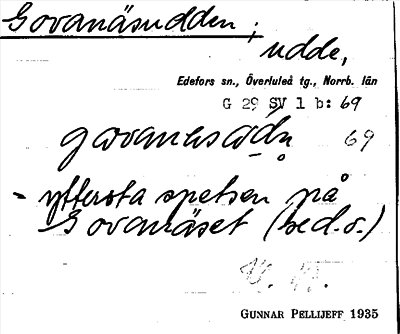 Govanäsudden;
udde,
Edefors sn., Överluleå tg., Norrb. län
G 29 SV 1 b: 69
69
- yttersta spetsen på
Govanäset (sed.o.)
GUNNAR PELLIJEFF 1935